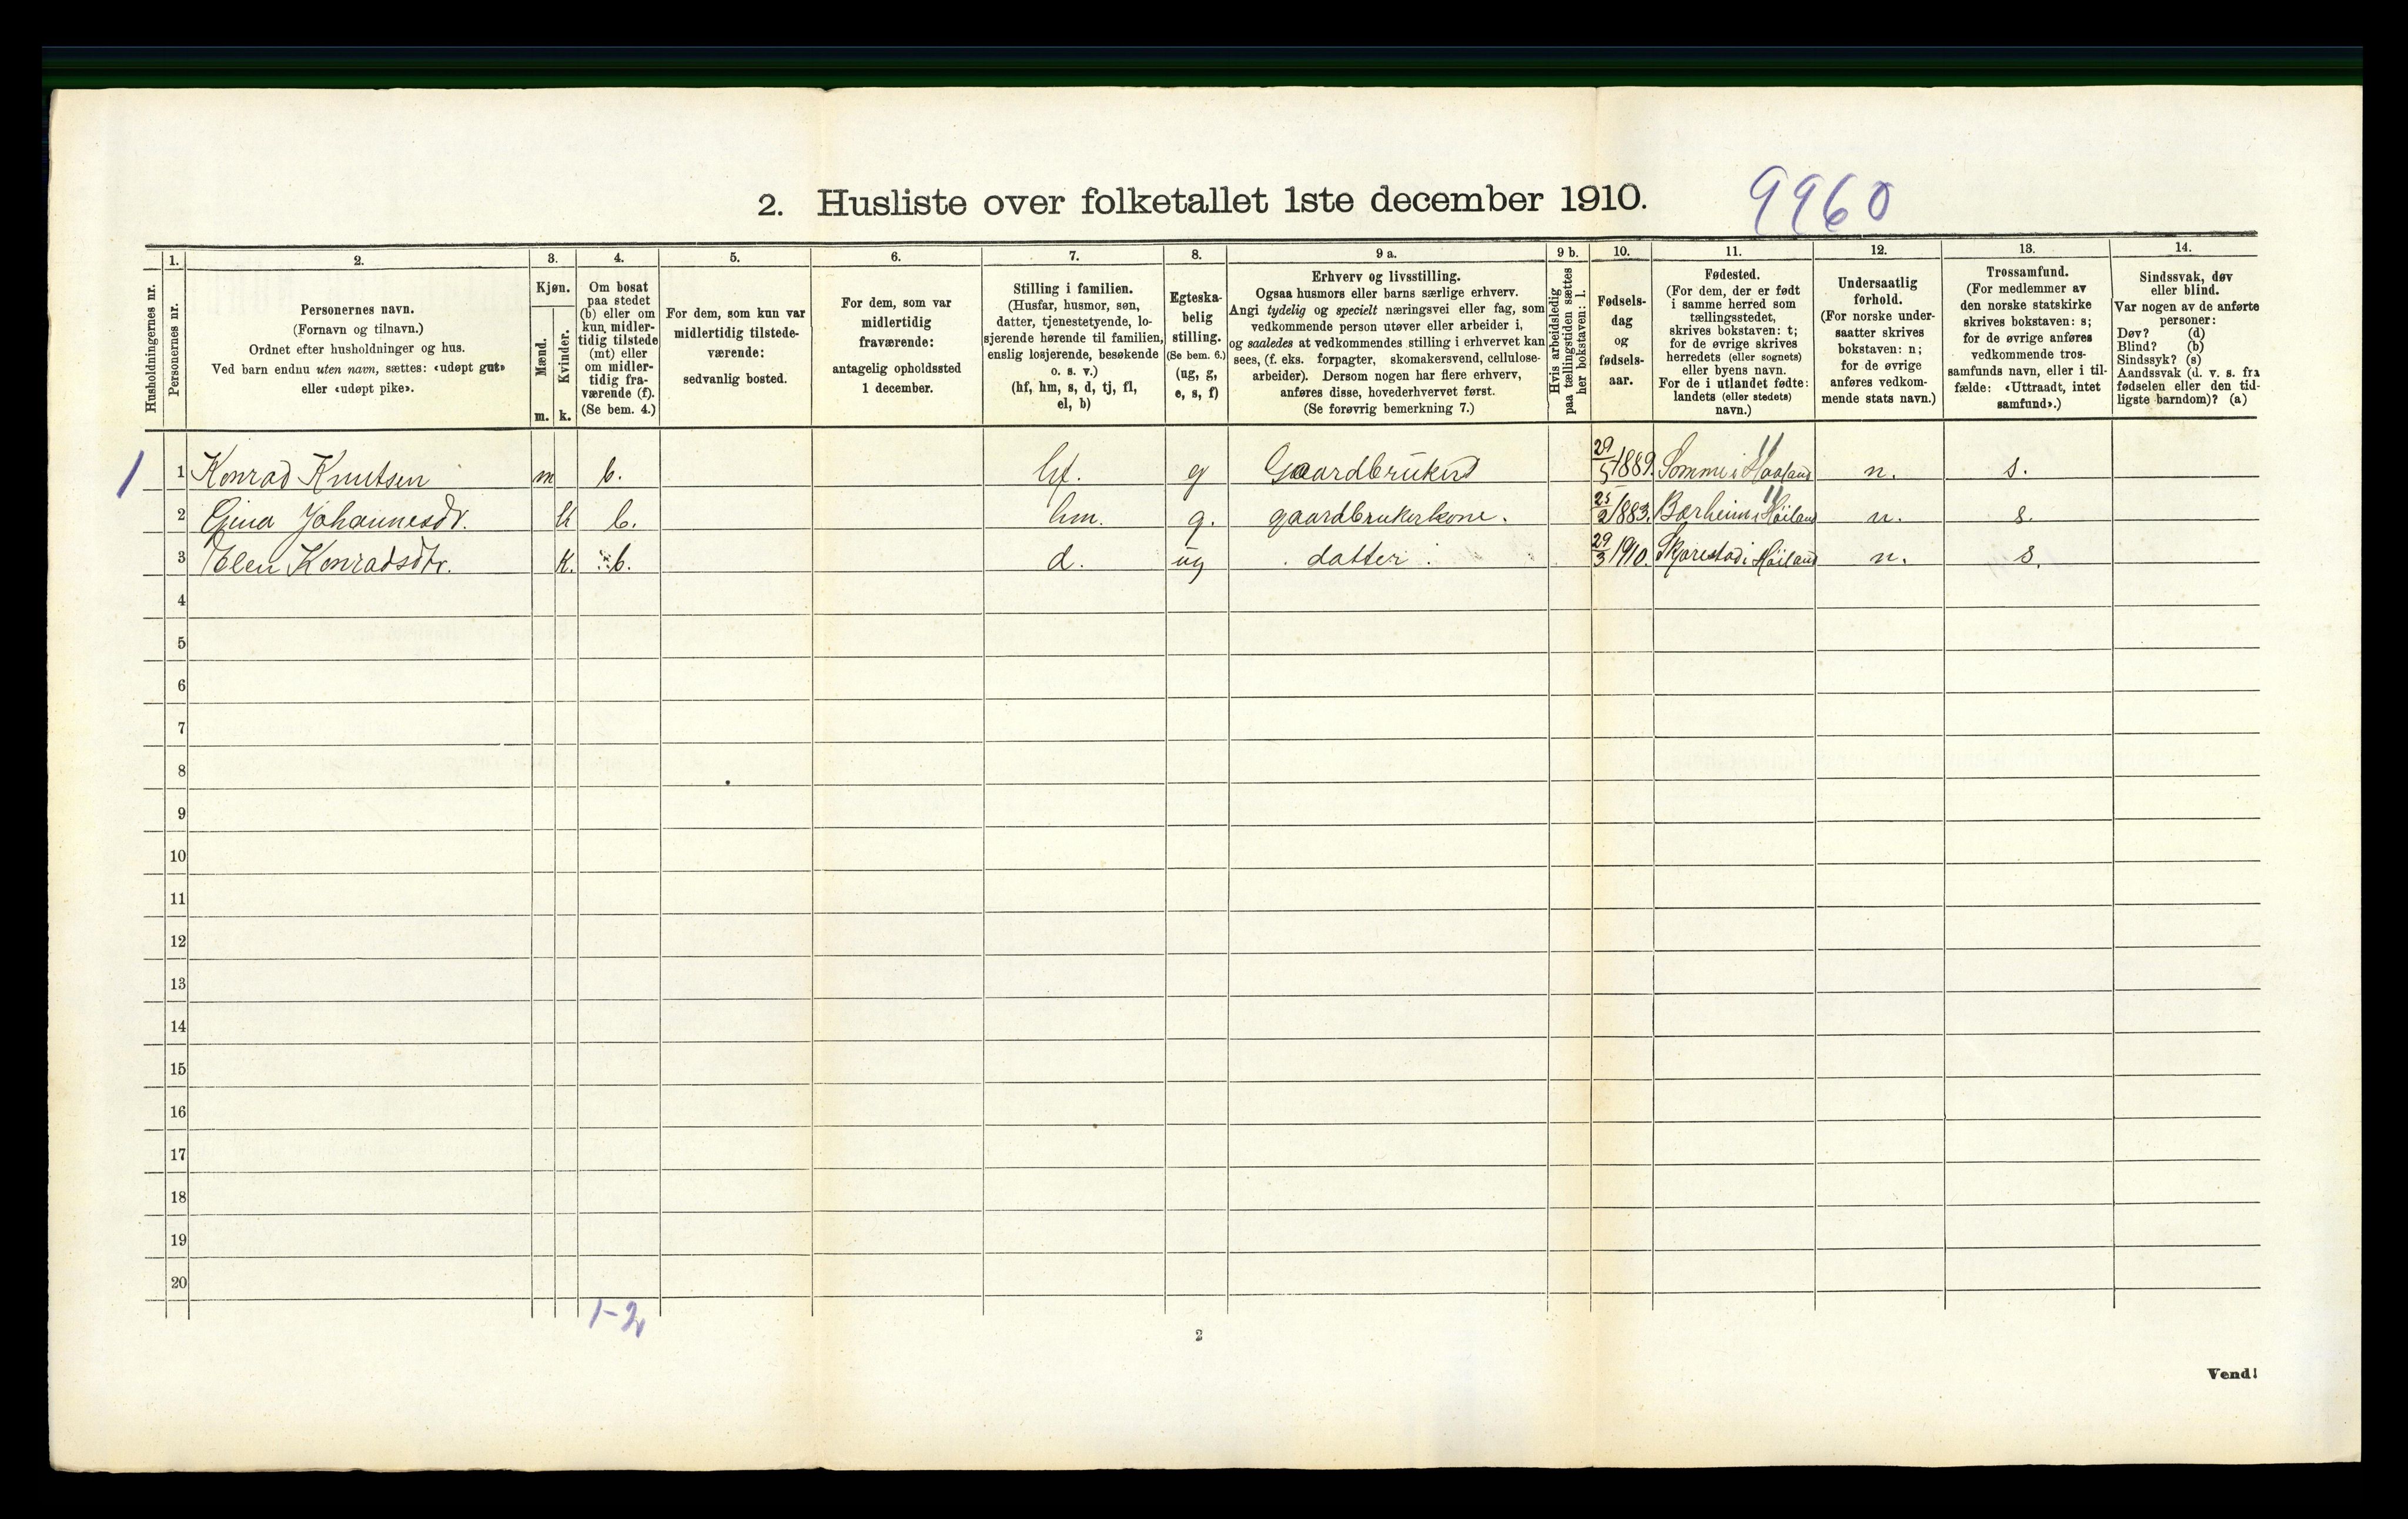 2. Husliste over folketallet 1ste december 1910. 9960
1. 2. 3. 4. 5. 6. 7. 8. 9 a. 9 b. 10. 11. 12. 13. 14.
Husholdningernes nr.
Personernes nr.
Personernes navn.
(Fornavn og tilnavn.)
Ordnet efter husholdninger og hus.
Ved barn endnu uten navn, sættes: «udøpt gut»
eller «udøpt pike».
Kjøn.
Mænd.
Kvinder.
m. k.
Om bosat
paa stedet
(b) eller om
kun midler-
tidig tilstede
(mt) eller
om midler-
tidig fra-
værende (f).
(Se bem. 4.)
For dem, som kun var
midlertidig tilstede-
værende:
sedvanlig bosted.
For dem, som var
midlertidig
fraværende:
antagelig opholdssted
1 december.
Stilling i familien.
(Husfar, husmor, søn,
datter, tjenestetyende, lo-
sjerende hørende til familien,
enslig losjerende, besøkende
o. s. v.)
(hf, hm, s, d, tj, fl,
el, b)
Egteska-
belig
stilling.
(Se bem. 6.)
(ug, g,
e, s, f)
Erhverv og livsstilling.
Ogsaa husmors eller barns særlige erhverv.
Angi tydelig og specielt næringsvei eller fag, som
vedkommende person utøver eller arbeider i,
og saaledes at vedkommendes stilling i erhvervet kan
sees, (f. eks. forpagter, skomakersvend, cellulose-
arbeider). Dersom nogen har flere erhverv,
anføres disse, hovederhvervet først.
(Se forøvrig bemerkning 7.)
Hvis arbeidsledig
paa tællingstiden sættes
her bokstaven: l.
Fødsels-
dag
og
fødsels-
aar.
Fødested.
(For dem, der er født
i samme herred som
tællingsstedet,
skrives bokstaven: t;
for de øvrige skrives
herredets (eller sognets)
eller byens navn.
For de i utlandet fødte:
landets (eller stedets)
navn.)
Undersaatlig
forhold.
(For norske under-
saatter skrives
bokstaven: n;
for de øvrige
anføres vedkom-
mende stats navn.)
Trossamfund.
(For medlemmer av
den norske statskirke
skrives bokstaven: s;
for de øvrige anføres
vedkommende tros-
samfunds navn, eller i til-
fælde: «Uttraadt, intet
samfund».)
Sindssvak, døv
eller blind.
Var nogen av de anførte
personer:
Døv? (d)
Blind? (b)
Sindssyk? (s)
Aandssvak (d. v. s. fra
fødselen eller den tid-
ligste barndom)? (a)
1 1 Konrad Knutsen m b. hf. g Gaardbruker 29/5 1889. Somme i Haaland n. s.
2 Gina Johannesdr. k b. hm. g. gaardbrukerkone. 25/2 1883. Bærheim i Høiland n. s.
3 Elen Konradsdtr. K. b. d. ug datter 29/3 1910. Skjørestad i Høiland n. s.
4
5
6
7
8
9
10
11
12
13
14
15
16
17
18
19
20
1-2
2
Vend!